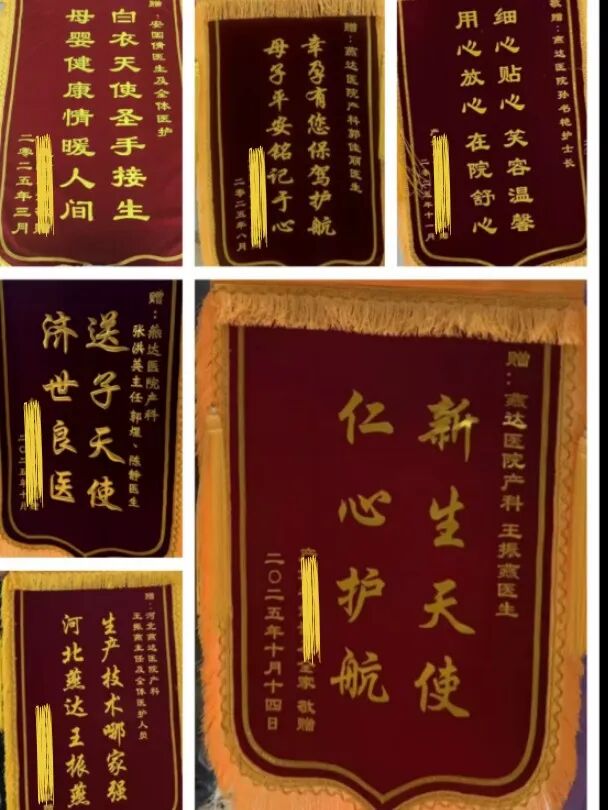 赠：安国倩医生及全体医护
白衣天使圣手接生
母婴健康情暖人间
二零二五年三月
赠：燕达医院产科郭佳丽医生
幸孕有您保驾护航
母子平安铭记于心
二零二五年八月
敬赠：燕达医院孙书艳护士长
细心贴心 笑容温馨
用心放心 在院舒心
二〇二五年十一月
赠：燕达医院产科
张洪英主任郭煜、陈静医生
送子天使
济世良医
二〇二五年十月
赠：燕达医院产科 王振燕医生
新生天使
仁心护航
全家 敬赠
二〇二五年十月十四日
赠：河北燕达医院产科
王振燕主任及全体医护人员
生产技术哪家强
河北燕达王振燕